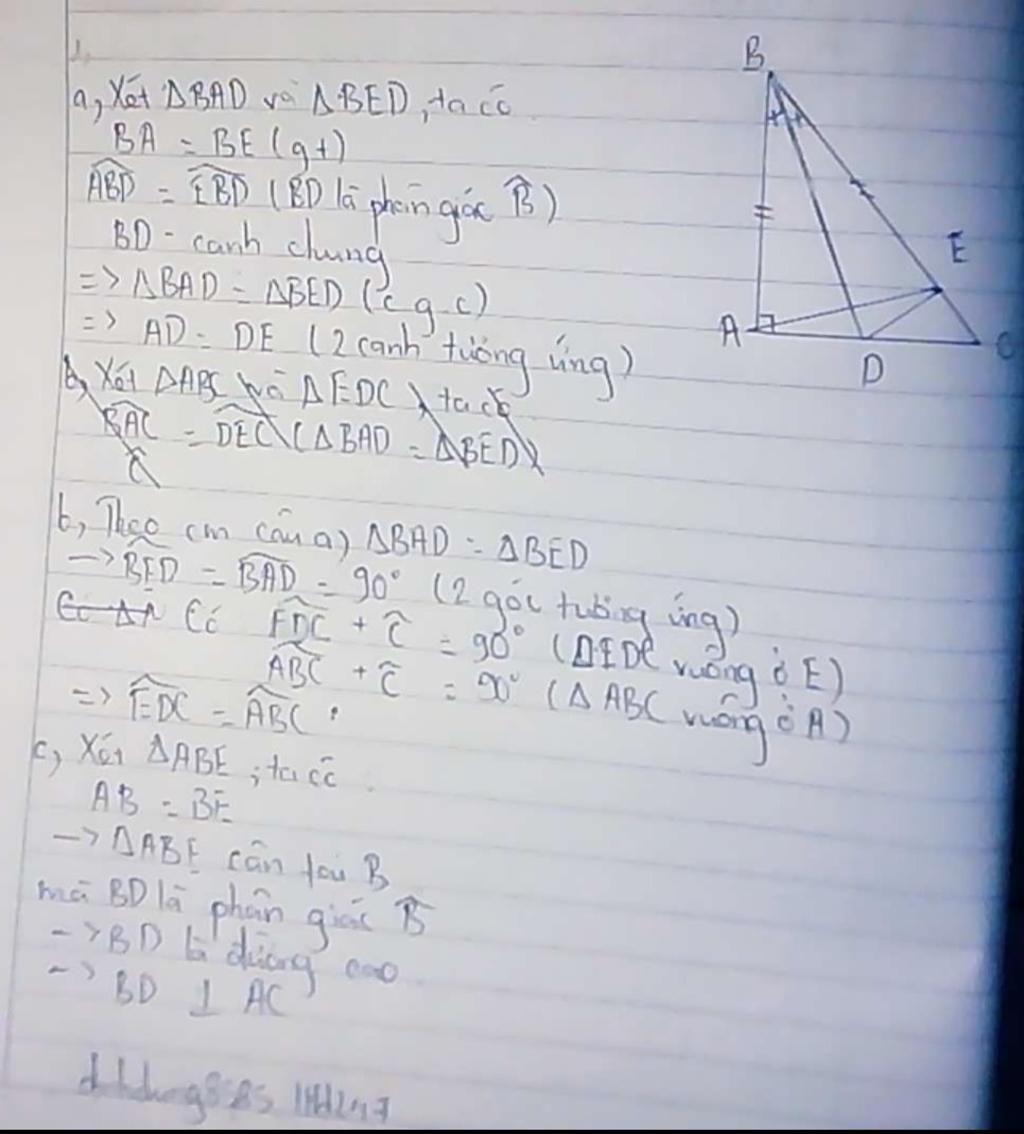 1,
a, Xét ΔBAD và ΔBED, ta có
BA = BE (gt)
ABD = EBD (BD là phân giác B)
BD - cạnh chung
=> ΔBAD = ΔBED (c g.c)
=> AD = DE (2 cạnh tương ứng)
b, Xét ΔABC và ΔEDC, ta có
BAC = DEC (ΔBAD = ΔBED)
C
b, Theo cm câu a) ΔBAD = ΔBED
-> BED = BAD = 90° (2 góc tương ứng)
Có ΔA Có EDC + C = 90° (ΔEDC vuông ở E)
ABC + C = 90° (ΔABC vuông ở A)
=> EDC = ABC.
c, Xét ΔABE; ta có
AB = BE
-> ΔABE cân tại B
mà BD là phân giác B
-> BD là đường cao
-> BD ⊥ AC
B
E
A
D
C